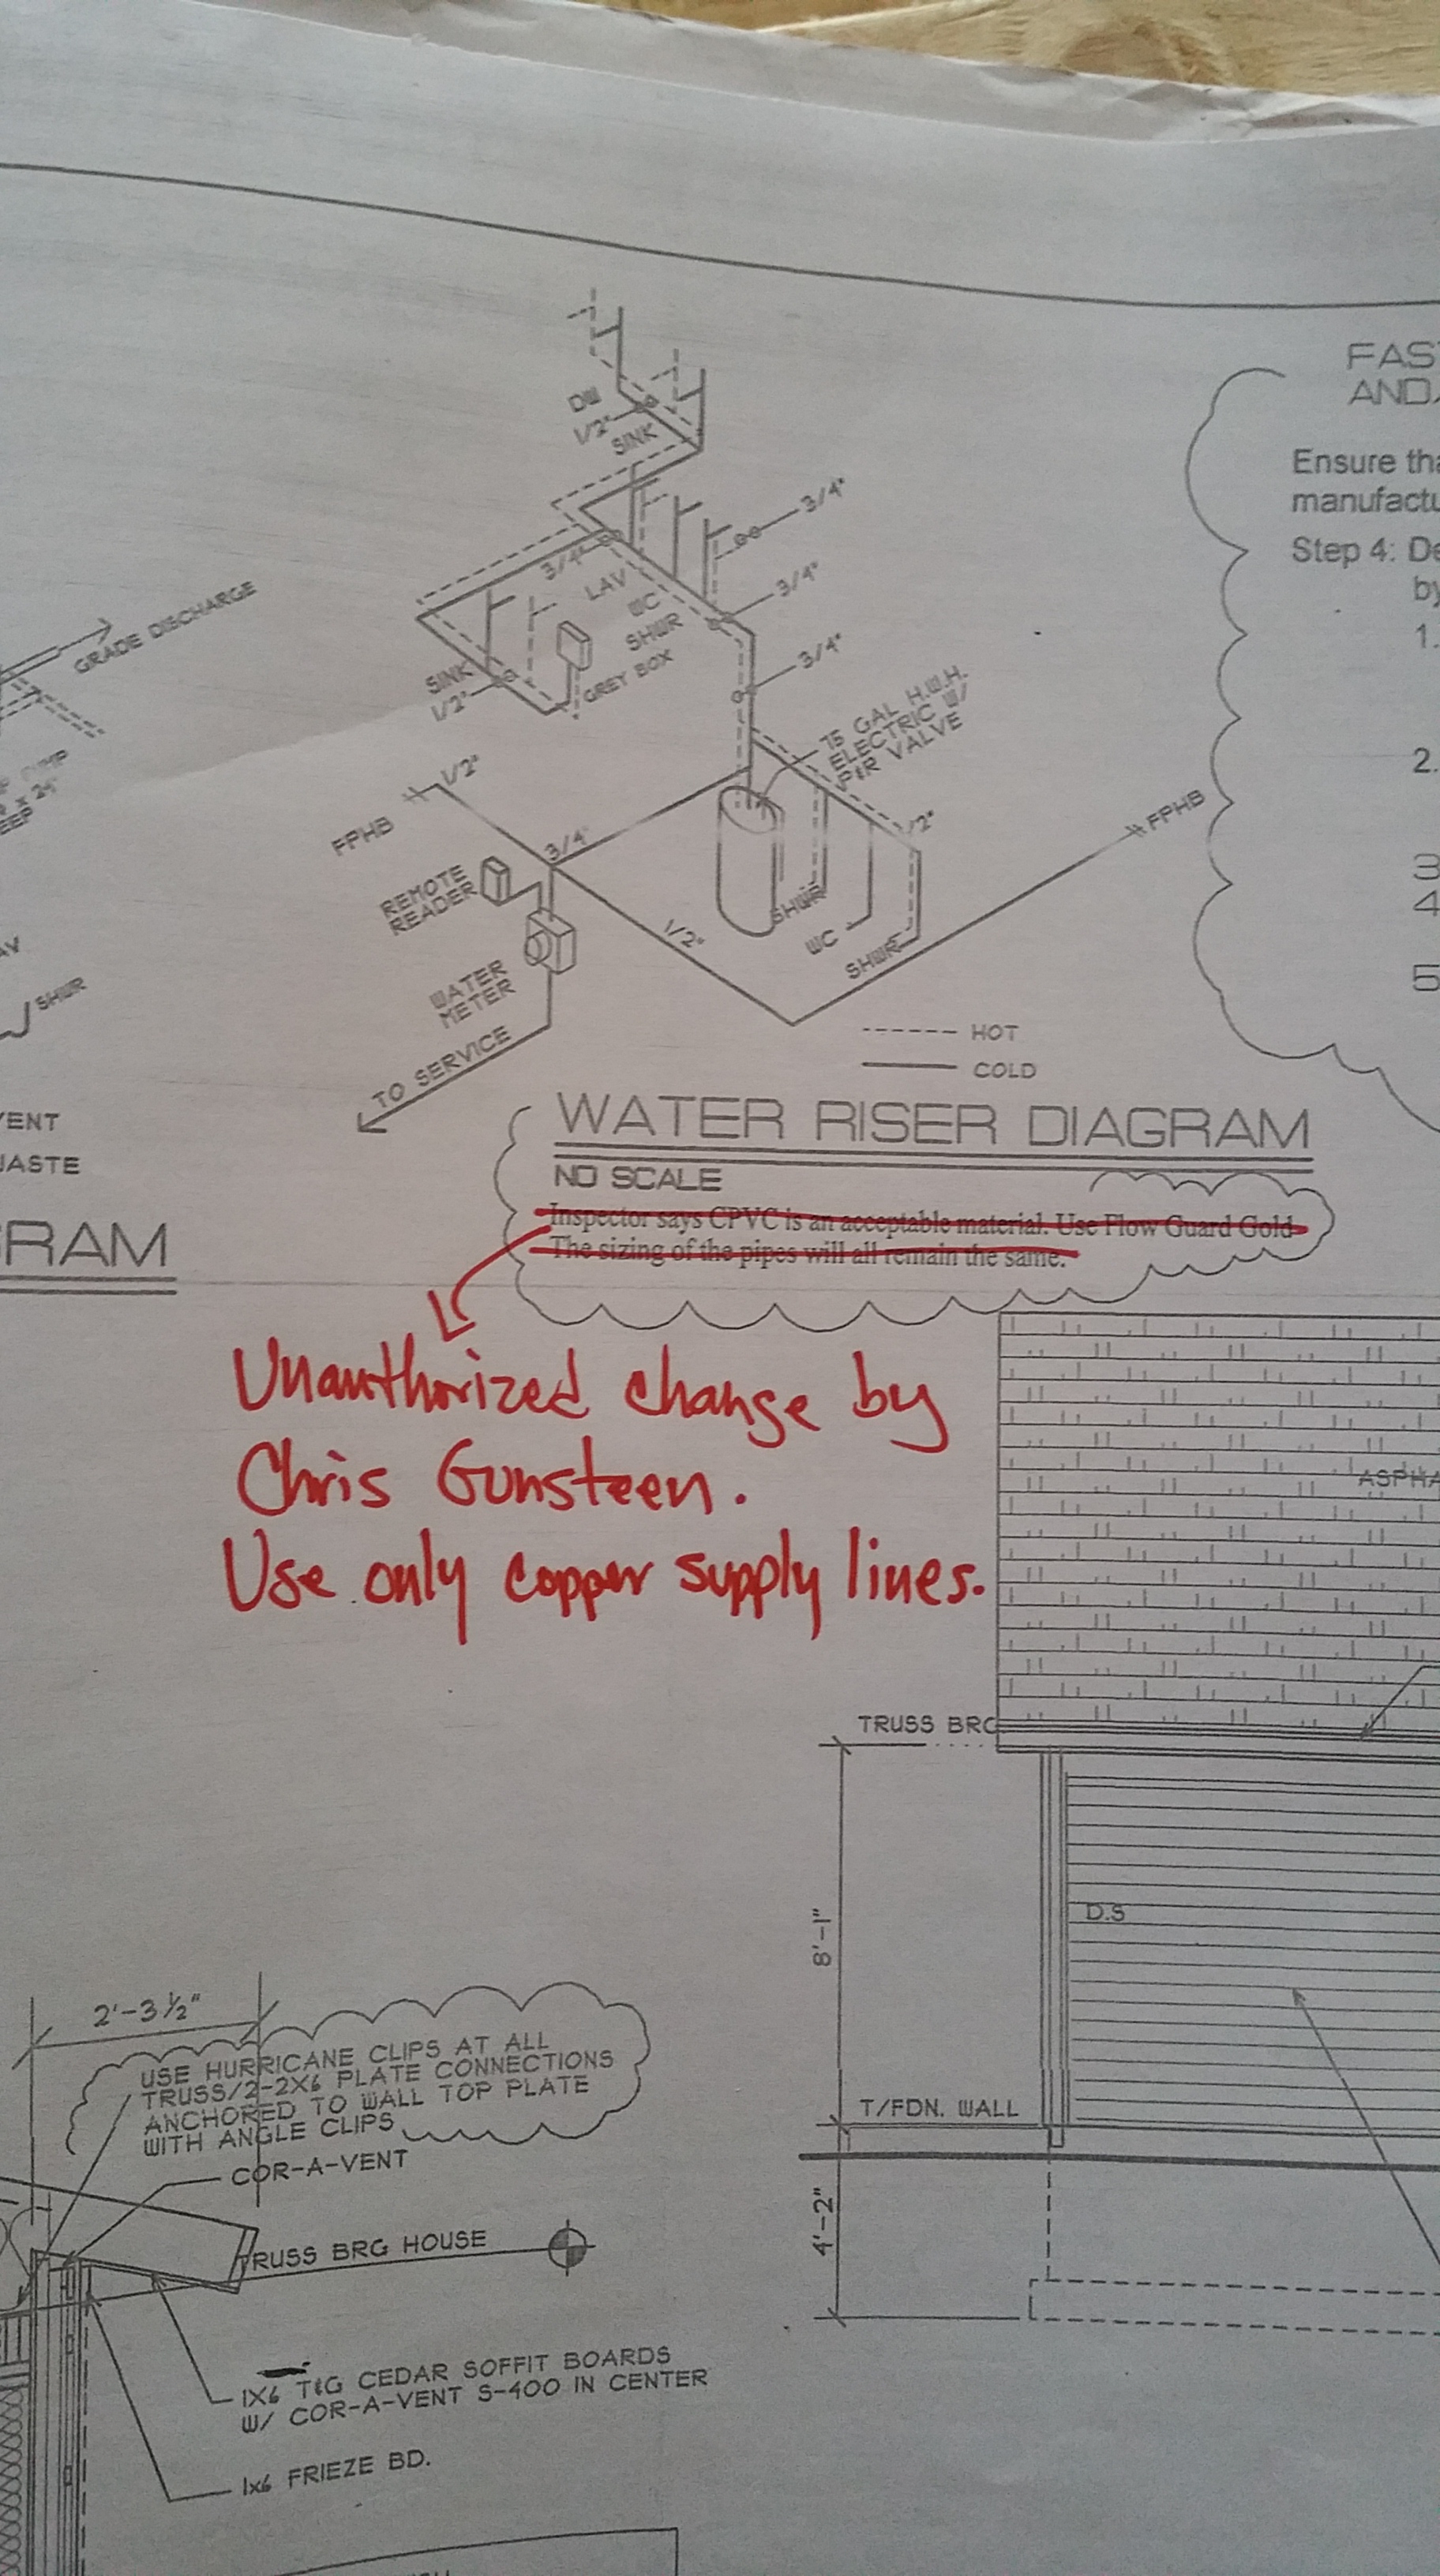 FAS
AND
Ensure tha
manufactu
Step 4: De
by
1.
2.
3
4
5
DW
1/2"
SINK
3/4"
3/4"
3/4"
3/4"
LAV
WC
SHWR
GREY BOX
SINK
1/2"
GRADE DISCHARGE
75 GAL H.W.H.
ELECTRIC W/
P&R VALVE
1/2"
FPHB
3/4"
REMOTE
READER
WATER
METER
TO SERVICE
1/2"
SHWR
WC
SHWR
/2"
FPHB
SHWR
HOT
COLD
VENT
WASTE
RAM
WATER RISER DIAGRAM
NO SCALE
Inspector says CPVC is an acceptable material. Use Flow Guard Gold
The sizing of the pipes will all remain the same.
Unauthorized change by
Chris Gunsteen.
Use only copper supply lines.
ASPHA
TRUSS BRG
8'-1"
D.S
T/FDN. WALL
4'-2"
2'-3 1/2"
USE HURRICANE CLIPS AT ALL
TRUSS/2-2X6 PLATE CONNECTIONS
ANCHORED TO WALL TOP PLATE
WITH ANGLE CLIPS
COR-A-VENT
TRUSS BRG HOUSE
1X6 T&G CEDAR SOFFIT BOARDS
W/ COR-A-VENT S-400 IN CENTER
1x6 FRIEZE BD.